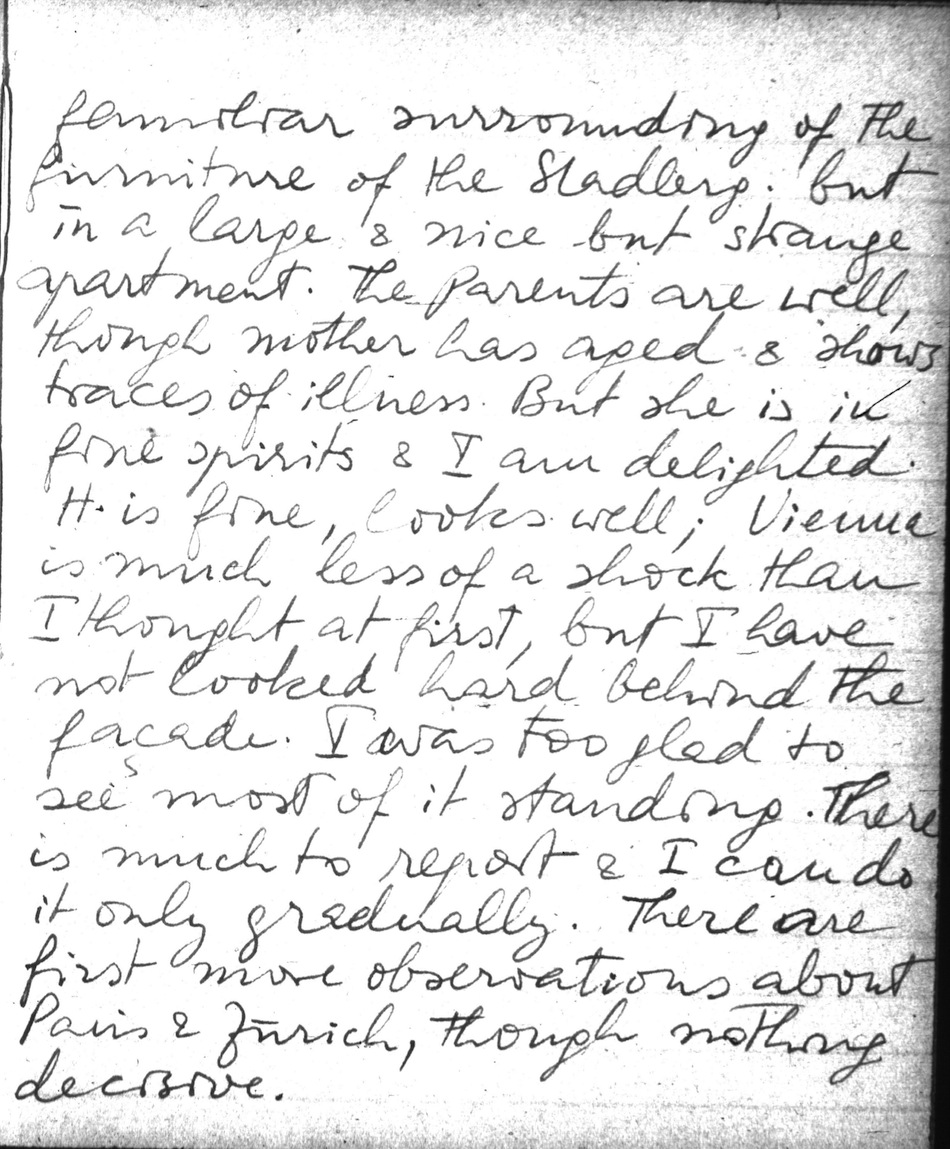 familiar surrounding of the
furniture of the Stadlerg. but
in a large & nice but strange
apartment. The Parents are well,
though mother has aged & shows
traces of illness. But she is in
fine spirits & I am delighted.
H. is fine, looks well; Vienna
is much less of a shock than
I thought at first, but I have
not looked hard behind the
façade. I was too glad to
see most of it standing. There
is much to report & I can do
it only gradually. There are
first more observations about
Paris & Zürich, though nothing
decisive.